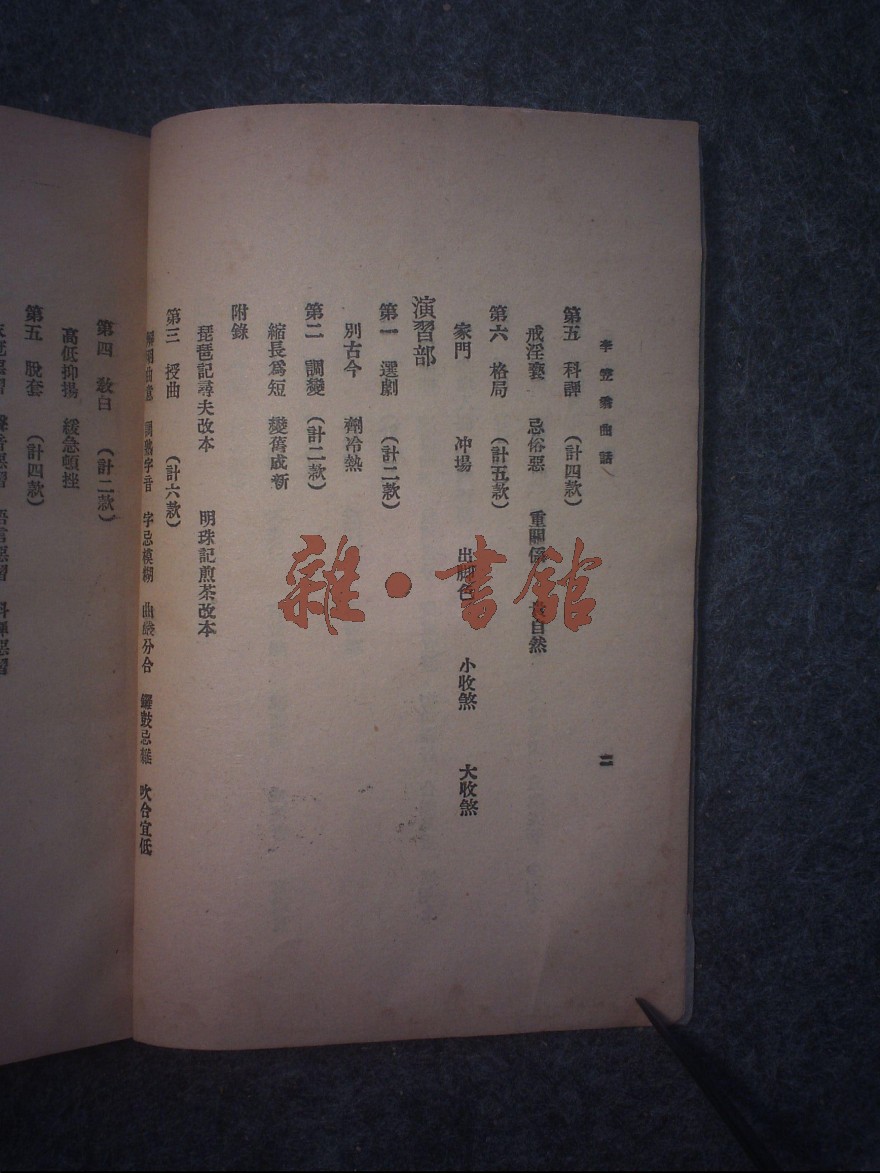 李笠翁曲話
二
第五 科諢 (計四款)
戒淫褻 忌俗惡 重關係 自然
第六 格局 (計五款)
家門 冲場 出脚色 小收煞 大收煞
演習部
第一 選劇 (計二款)
別古今 劑冷熱
第二 調變 (計二款)
縮長爲短 變舊成新
附錄
琵琶記尋夫改本 明珠記煎茶改本
第三 授曲 (計六款)
解明曲意 調熟字音 字忌模糊 曲嚴分合 鑼鼓忌雜 吹合宜低
第四 敎白 (計二款)
高低抑揚 緩急頓挫
第五 脫套 (計四款)
惡習 聲音惡習 語言惡習 科諢惡習
雜·書館